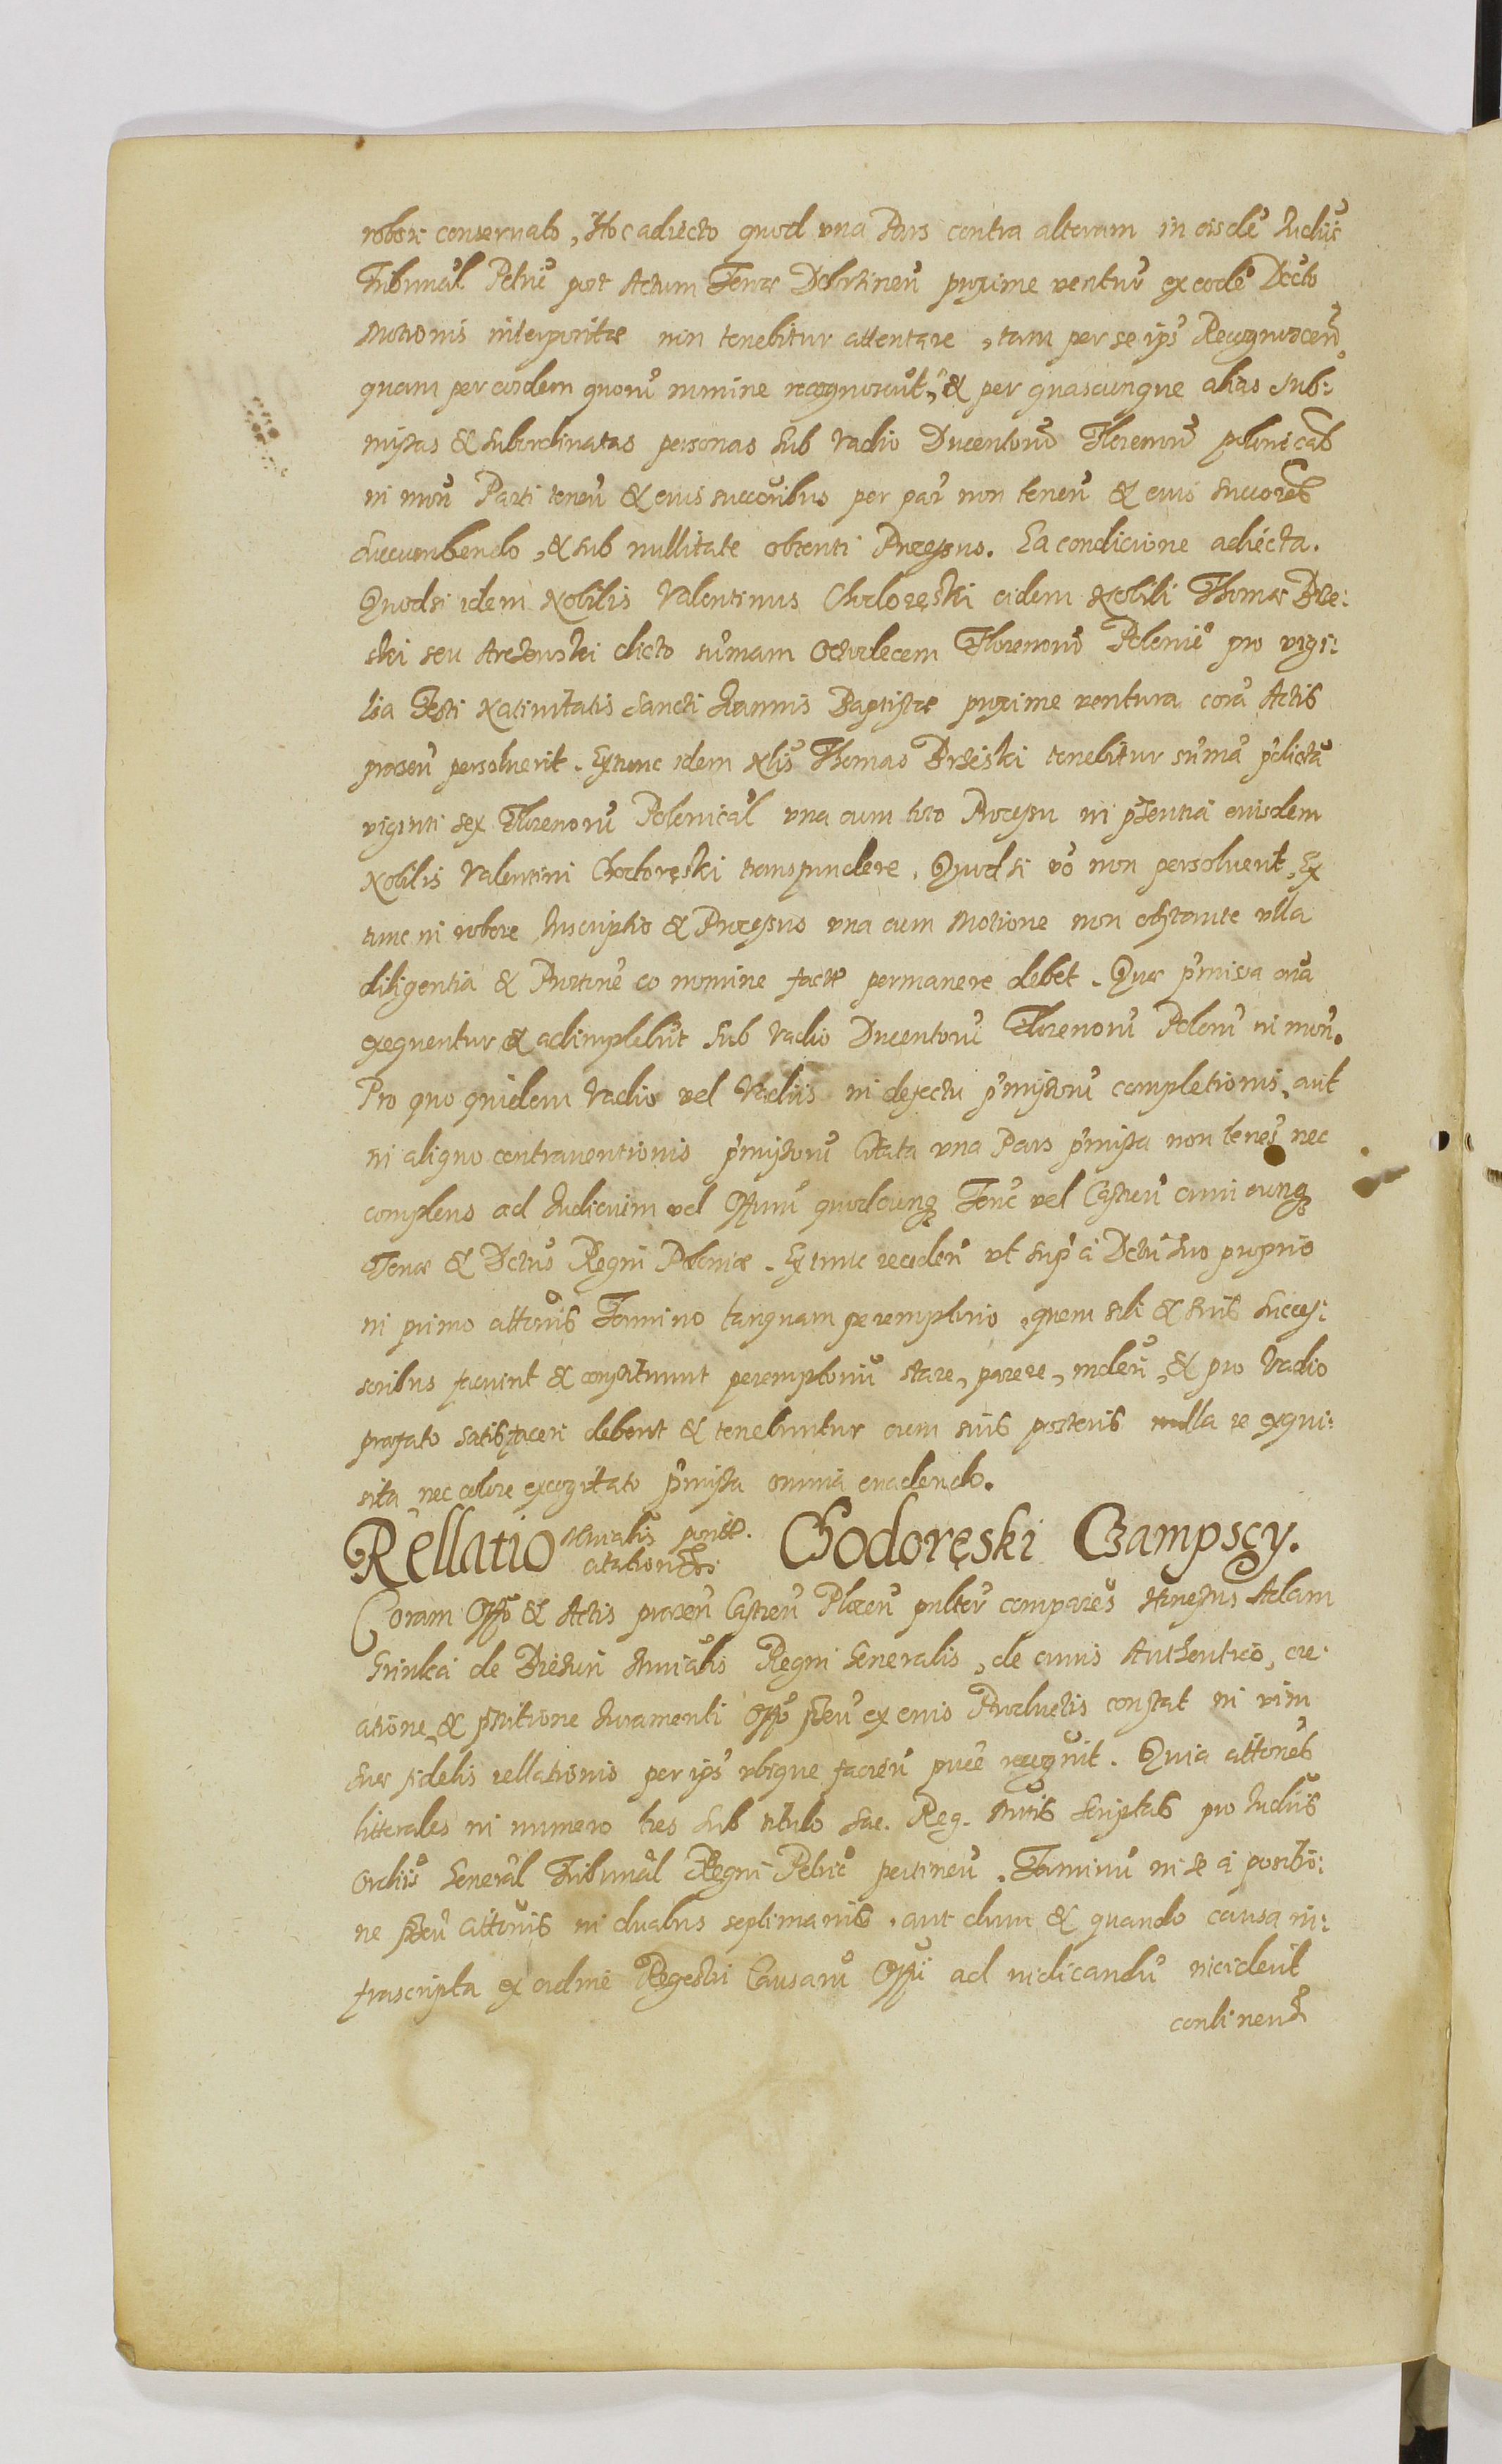 robore conservato, Hoc adiecto quod una Pars contra alteram in eisdē Iudiis
Tribunal Petric post Actum Terrae Dobrzinen̄ proxime ventur̄ ex eodē Dccto
Motionis interpositae non tenebitur attentare, tam per se ips̄ Recognoscen̄
quam per eosdem quorū nomine recognoscūt, & per quascunque alias sub:
missas & subordinatas personas sub vadio Ducentorū Florenorū polonicab
in mon̄ Parti tenen̄ & eius succoribus per par̄ non tenen̄ & eius succores
succumbendo, & sub nullitate obtenti Processus. Ea condicione adiecta.
Quod si idem Nobilis Valentinus Chodoręski eidem Nobili Thomae Brze:
ski seu dicto sūmam Octodecem Florenorū Polonic pro vigi:
lia Festi Nativitatis Sancti Ioannis Baptistae proxime ventura corā Actis
praesen̄ persolverit. Extunc idem Nlis Thomas Brzeski tenebitur sūmā p̄dictā
viginti sex Florenorū Polonical una cum toto Processu in p̄sentia eiusdem
Nobilis Valentini Chodoręski transfundere. Quod si vō non persolverit, Ex
tunc in robore Inscriptio & Processus una cum Motione non obstante ulla
diligentia & eo nomine factae permanere debet. Quae p̄missa oīa
exequentur & adimplebūt sub vadio Ducentorū Florenorū Polonī in mon̄.
Pro quo quidem vadio vel Vadiis in defectu p̄missorū completionis, aut
in aliquo contraventionis p̄missorū Citata una Pars p̄missa non tenes nec
complens ad Iudicium vel Offium quodcunq Terre vel Castren̄ cuiuscunq
Terrae & Dctus Regni Poloniae. Extunc receden̄ ut sup̄ a Dctu suo proprio
in primo attonis Termino tanquam peremptorio, quem sibi & suis succes:
soribus faciunt & constituunt peremptoriū stare, parere, & pro Vadio
praefato satisfacere debent & tenebuntur cum suis posteris nulla re exqui:
sita nec colore excogitato p̄missa omnia evadendo.
Rellatio citationis Chodoręski Czampscy.
Coram Offo & Actis praesen̄ Castren̄ Plocen̄ psnlter̄ comparēs Honestus Adam
de Ministerialis Regni Generalis, de cuius Authentico, cre:
atione, & p̄stitione Iuramenti Offo p̄sen̄ ex eius Productis constat in vim
suae fidelis rellationis per ips̄ ubique facien̄ puce recognit. Quia attones
litterales in numero tres sub titulo Sac. Reg. Mttis Scriptas pro Iudiis
Ordiis General Tribunal Regni Petric pertinen̄. Terminū in se a positio:
ne p̄sen̄ attonis in duabus septimanis, aut dum & quando causa in:
frascripta ex ordine Regestri Causarū Offi ad iudicandū inciderit
continen̄